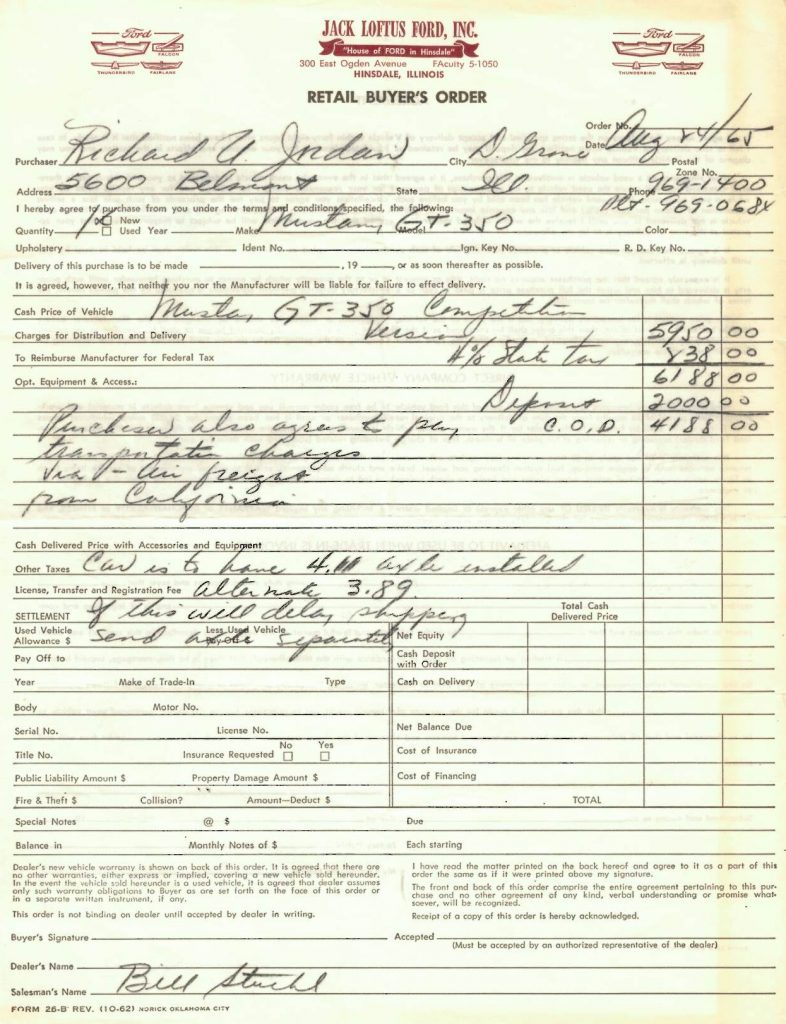 Ford
FALCON
THUNDERBIRD FAIRLANE
JACK LOFTUS FORD, INC.
"House of FORD in Hinsdale"
300 East Ogden Avenue FAculty 5-1050
HINSDALE, ILLINOIS
Ford
FALCON
THUNDERBIRD FAIRLANE
RETAIL BUYER'S ORDER
Order No.
Date Aug 24/65
Purchaser Richard A. Jordan City D. Grove Postal Zone No.
Address 5600 Belmont State Ill. Phone 969-1400
969-068x
I hereby agree to purchase from you under the terms and conditions specified, the following:
Quantity 1 New Used Year Make Mustang Model GT-350 Color
Upholstery Ident No. Ign. Key No. R. D. Key No.
Delivery of this purchase is to be made , 19 , or as soon thereafter as possible.
It is agreed, however, that neither you nor the Manufacturer will be liable for failure to effect delivery.
Cash Price of Vehicle Mustang GT-350 Competition
Charges for Distribution and Delivery Version 5950 00
To Reimburse Manufacturer for Federal Tax 4% State tax 238 00
Opt. Equipment & Access.: 6188 00
Deposit 2000 00
Purchaser also agrees to pay C.O.D. 4188 00
transportation charges
Via - Air freight
from California
Cash Delivered Price with Accessories and Equipment
Other Taxes Car is to have 4.11 axle installed
License, Transfer and Registration Fee alternate 3.89
SETTLEMENT If this will delay shipping Total Cash Delivered Price
Used Vehicle Allowance $ send axle separately Less Used Vehicle Payoff $ Net Equity
Pay Off to Cash Deposit with Order
Year Make of Trade-In Type Cash on Delivery
Body Motor No.
Serial No. License No. Net Balance Due
Title No. Insurance Requested No Yes Cost of Insurance
Public Liability Amount $ Property Damage Amount $ Cost of Financing
Fire & Theft $ Collision? Amount—Deduct $ TOTAL
Special Notes @ $ Due
Balance in Monthly Notes of $ Each starting
Dealer's new vehicle warranty is shown on back of this order. It is agreed that there are
no other warranties, either express or implied, covering a new vehicle sold hereunder.
In the event the vehicle sold hereunder is a used vehicle, it is agreed that dealer assumes
only such warranty obligations to Buyer as are set forth on the face of this order or
in a separate written instrument, if any.
This order is not binding on dealer until accepted by dealer in writing.
I have read the matter printed on the back hereof and agree to it as a part of this
order the same as if it were printed above my signature.
The front and back of this order comprise the entire agreement pertaining to this pur-
chase and no other agreement of any kind, verbal understanding or promise what-
soever, will be recognized.
Receipt of a copy of this order is hereby acknowledged.
Buyer's Signature Accepted
(Must be accepted by an authorized representative of the dealer)
Dealer's Name
Salesman's Name Bill Stuehl
FORM 26-B REV. (10-62) NORICK OKLAHOMA CITY